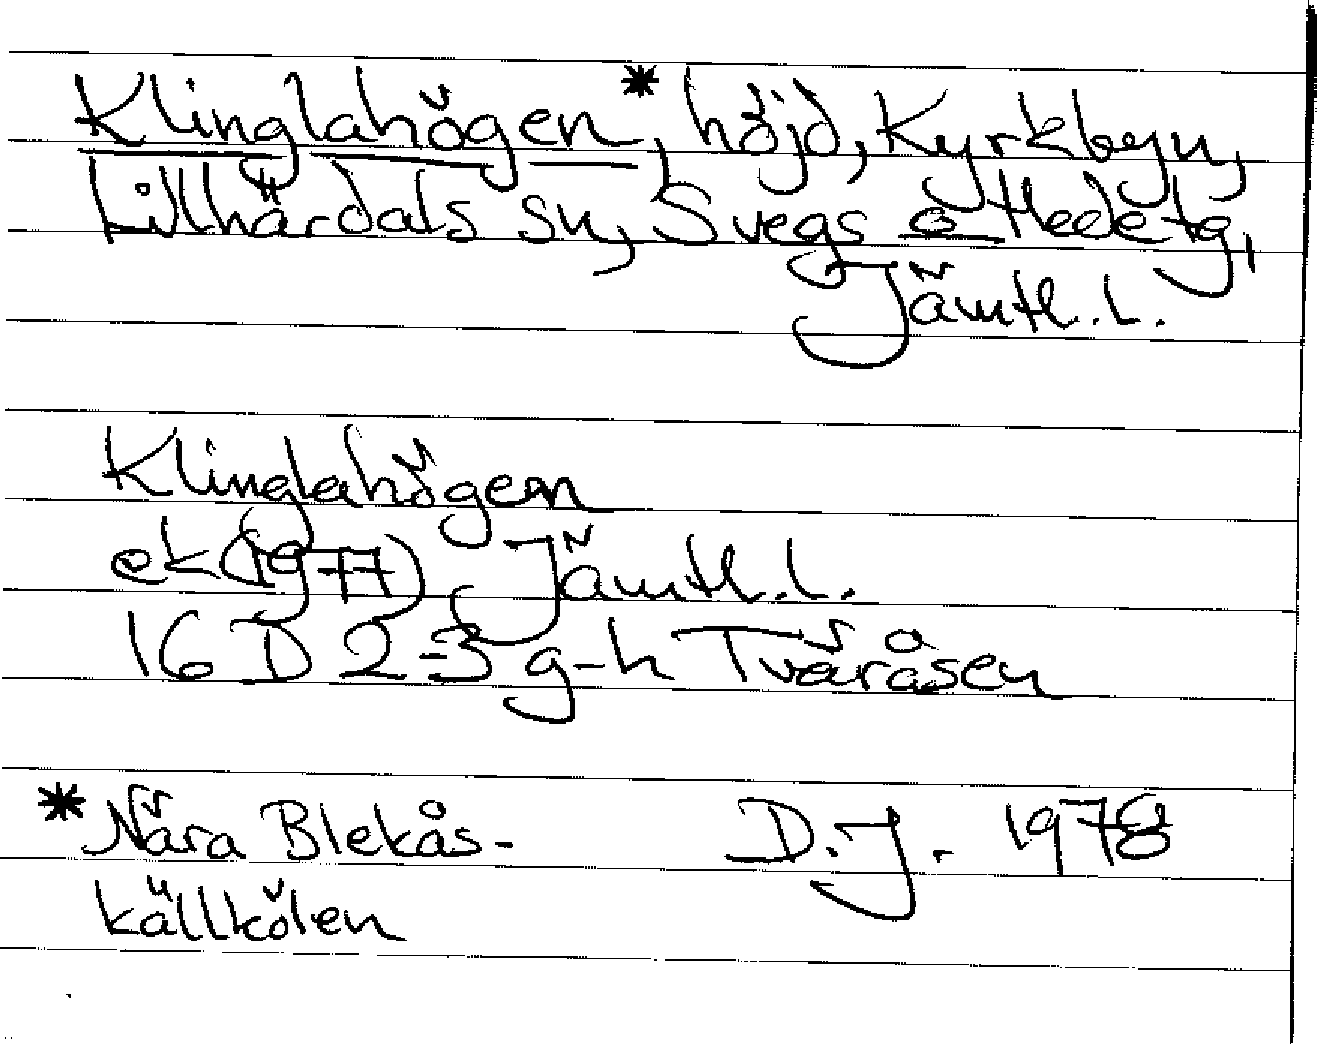 Klinglahögen*, höjd, Kyrkbyn,
Lillhärdals sn, Svegs o Hede tg,
Jämtl. l.
Klinglahögen
ek (1977) Jämtl. l.
16 D 2-3 g-h Tväråsen
* Nära Blekås-
källkölen
D.J. 1978